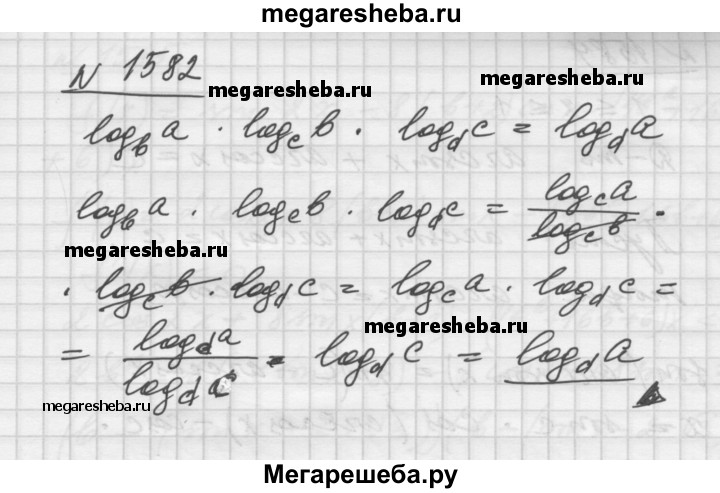 megaresheba.ru
N 1582
megaresheba.ru
megaresheba.ru
log_b a · log_c b · log_d c = log_d a
log_b a · log_c b · log_d c = \frac{log_c a}{log_c b} ·
megaresheba.ru
· log_c b · log_d c = log_c a · log_d c =
megaresheba.ru
= \frac{log_d a}{log_d c} · log_d c = log_d a
megaresheba.ru
Мегарешеба.ру